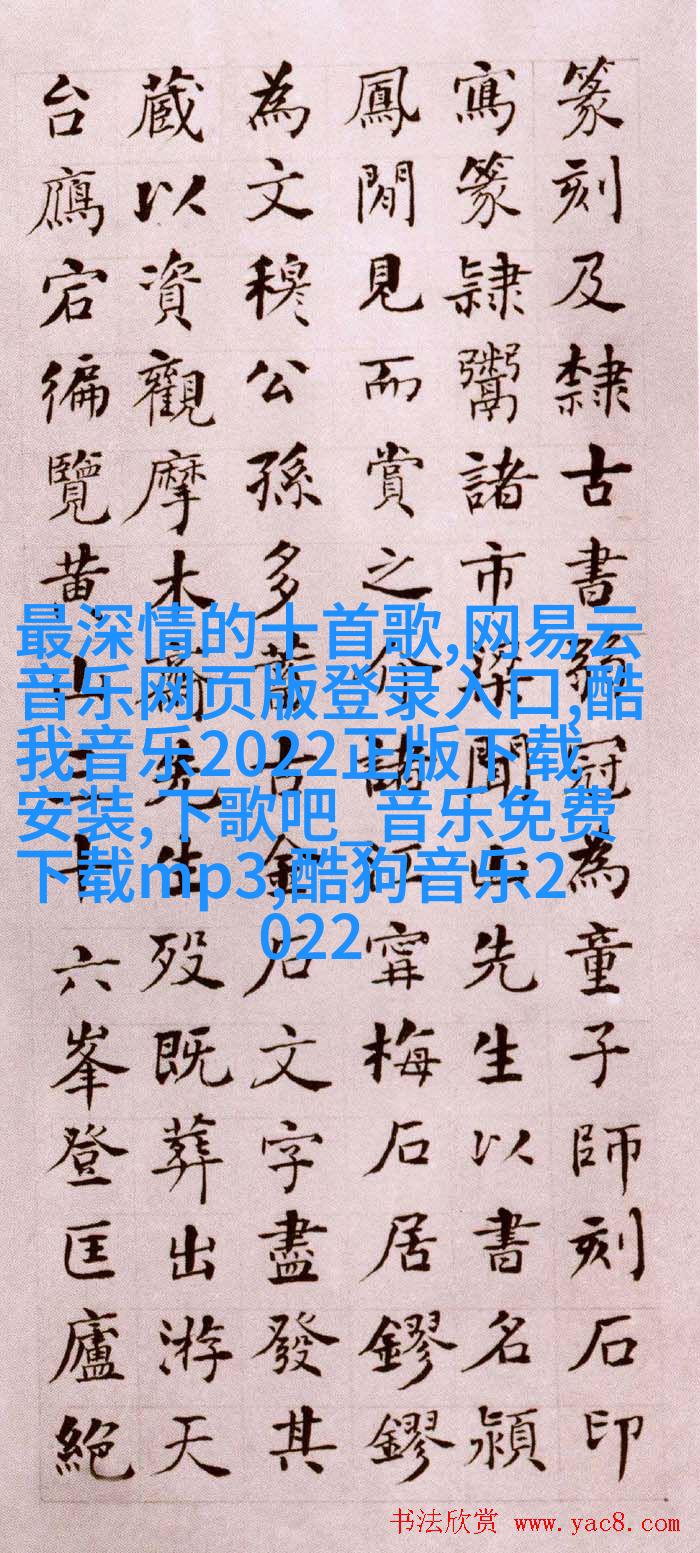 篆刻及隸古書弱冠為童子師刻石印
寫篆隸鬻諸市梁聞山先生以書名潁
鳳閒見而賞之介諸江甯梅石居鏐鏐
為文穆公孫多蓄古金石文字盡發其
蔵以資觀摩木齋先生歿既葬出游天
台鴈宕徧覽黄山三十六峯登匡廬絕
最深情的十首歌,网易云
音乐网页版登录入口,酷
我音乐2022正版下载
安装,下歌吧_音乐免费
下载mp3,酷狗音乐2
022
书法欣赏 www.yac8.com